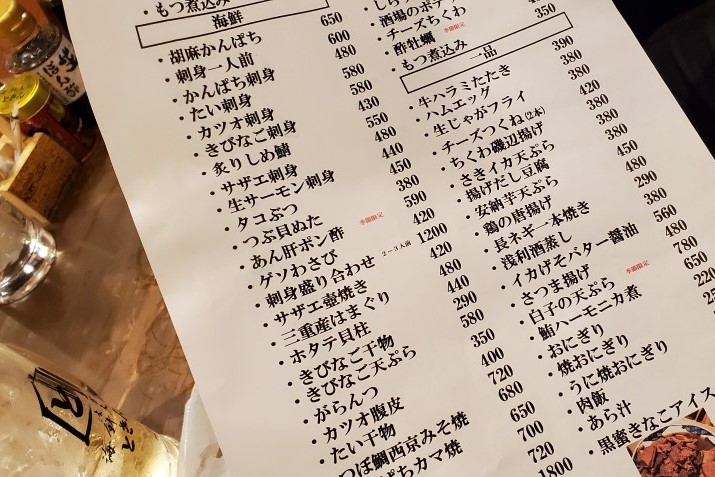 ・もつ煮込み
海鮮
・胡麻かんぱち 650
・刺身一人前 600
・かんぱち刺身 480
・たい刺身 580
・カツオ刺身 580
・きびなご刺身 430
・炙りしめ鯖 550
・サザエ刺身 480
・生サーモン刺身 440
・タコぶつ 450
・つぶ貝ぬた 380
・あん肝ポン酢 季節限定 590
・ゲソわさび 420
・刺身盛り合わせ 2～3人前 1200
・サザエ壺焼き 420
・三重産はまぐり 480
・ホタテ貝柱 440
・きびなご干物 290
・きびなご天ぷら 580
・がらんつ 350
・カツオ腹皮 400
・たい干物 720
つぼ鯛西京みそ焼 680
ぱちカマ焼 650
700
720
1800
・しら
・酒場のポテ
・チーズちくわ
・酢牡蠣 季節限定
・もつ煮込み 350
一品
・牛ハラミたたき 390
・ハムエッグ 380
・生じゃがフライ 380
・チーズつくね(2本) 420
・ちくわ磯辺揚げ 380
・さきイカ天ぷら 380
・揚げだし豆腐 380
・安納芋天ぷら 450
・鶏の唐揚げ 480
・長ネギ一本焼き 290
・浅利酒蒸し 380
・イカげそバター醤油 560
・さつま揚げ 480
・白子の天ぷら 季節限定 780
・鮪ハーモニカ煮 650
・おにぎり 220
・焼おにぎり 25
・うに焼おにぎり
・肉飯
・あら汁
・黒蜜きなこアイス